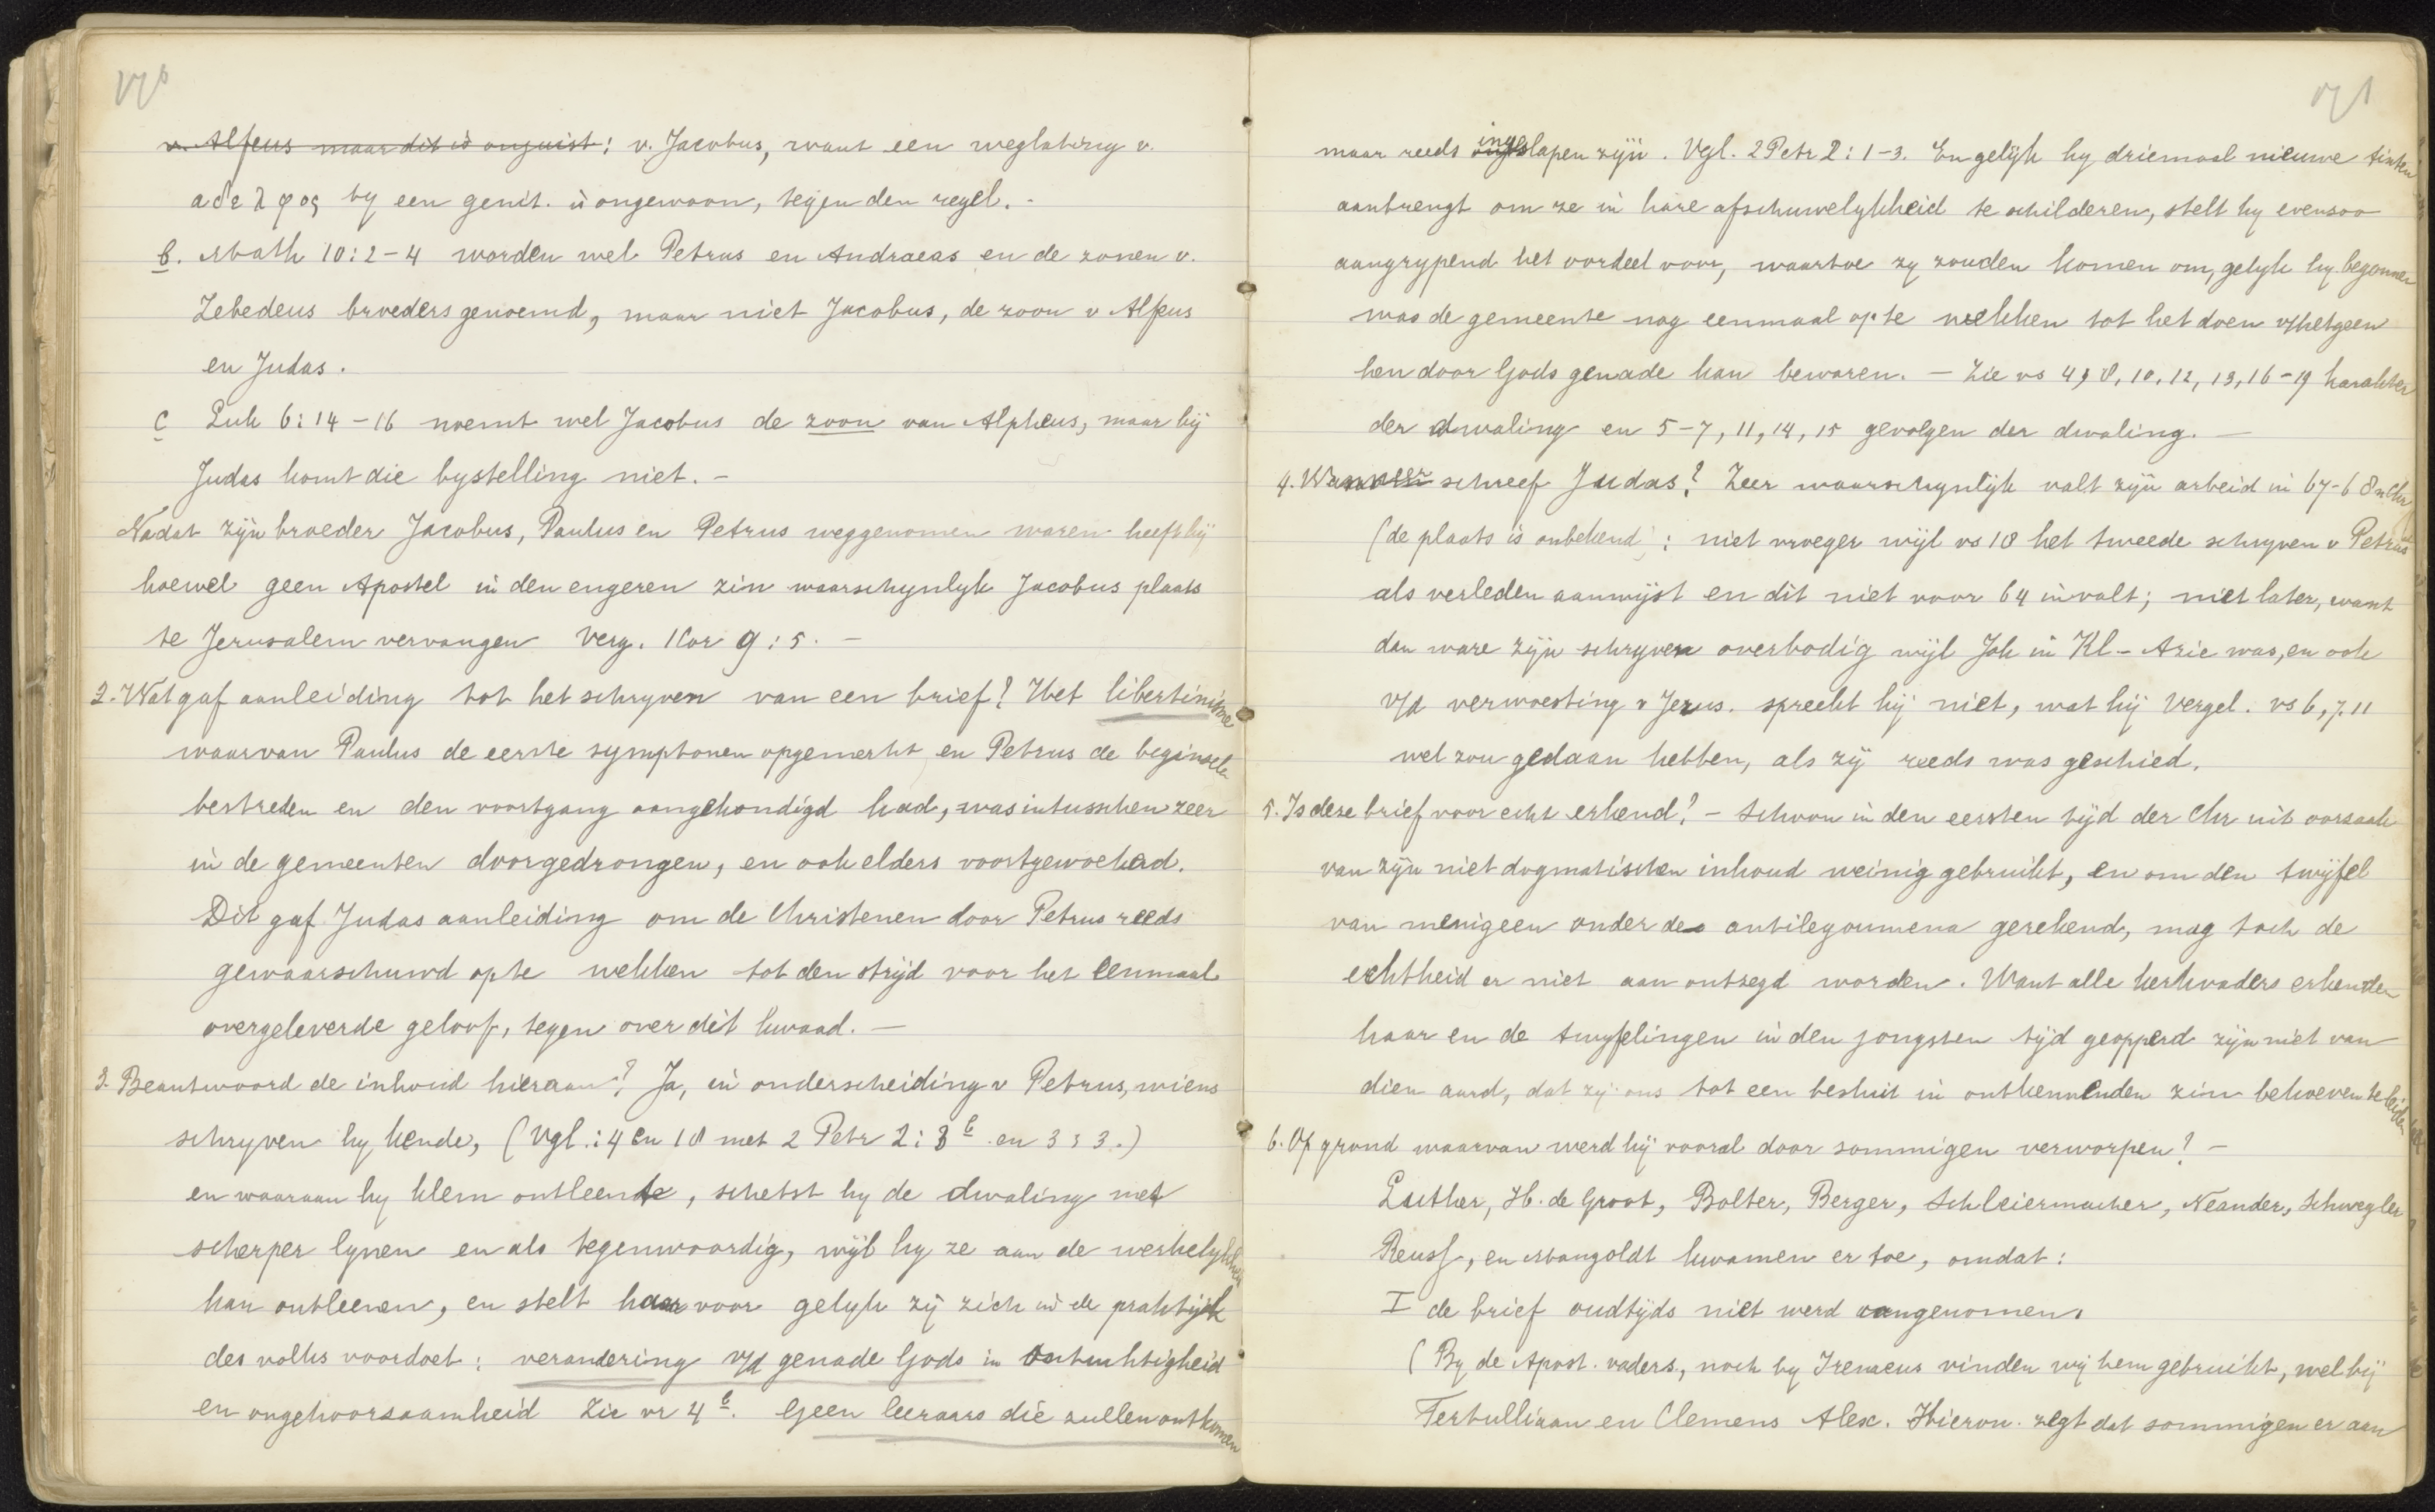 170
v. Alfeus maar dit is onjuist: v. Jacobus, want een weglating v.
αδελφος by een genit. is ongewoon, tegen den regel. -
b. Math 10:2-4 worden wel Petrus en Andraeas en de zonen v.
Zebedeus broeders genoemd, maar niet Jacobus, de zoon v Alfeus
en Judas.
c Luk 6:14-16 noemt wel Jacobus de zoon van Alpheus, maar bij
Judas komt die bystelling niet. -
Nadat zijn broeder Jacobus, Paulus en Petrus weggenomen waren heeft hij
hoewel geen Apostel in den engeren zin waarschynlyk Jacobus plaats
te Jerusalem vervangen Verg. 1 Cor 9:5. -
2. Wat gaf aanleiding tot het schryven van een brief? Het libertinisme
waarvan Paulus de eerste symptonen opgemerkt en Petrus de beginselen
bestreden en den voortgang aangekondigd had, was intusschen zeer
in de gemeenten doorgedrongen, en ook elders voortgewoekerd.
Dit gaf Judas aanleiding om de Christenen door Petrus reeds
gewaarschuwd op te wekken tot den strijd voor het eenmaal
overgeleverde geloof, tegen over dit kwaad. -
3. Beantwoord de inhoud hieraan? Ja, in onderscheiding v Petrus, wiens
schryven hy kende, (Vgl.: 4 en 18 met 2 Petr 2:3 b en 3:3.)
en waaraan hy klem ontleende, schetst hy de dwaling met
scherper lynen en als tegenwoordig, wijl hy ze aan de werkelykheid
kan ontleenen, en stelt haar voor gelyk zij zich in de praktijk
des volks voordoet: verandering v/d genade Gods in Ontuchtigheid
en ongehoorzaamheid Zie vr 4 b. Geen leeraars die zullen ontkomen
171
maar reeds ingeslapen zijn. Vgl. 2 Petr 2:1-3. En gelijk hy driemaal nieuwe tinten
aanbrengt om ze in hare afschuwelykheid te schilderen, stelt hy evenzoo
aangrypend het oordeel voor, waartoe zy zouden komen om, gelyk hy begonnen
was de gemeente nog eenmaal op te wekken tot het doen v/hetgeen
hen door Gods genade kan bewaren. - Zie vs 4, 8, 10, 12, 13, 16-19 karakter
der dwaling en 5-7, 11, 14, 15 gevolgen der dwaling. -
4. Wanneer schreef Judas? Zeer waarschynlijk valt zijn arbeid in 67-68 n Chr
(de plaats is onbekend): niet vroeger wijl vs 18 het tweede schryven v Petrus
als verleden aanwijst en dit niet voor 64 invalt; niet later, want
dan ware zijn schryven overbodig wijl Joh in Kl-Azie was, en ook
v/d verwoesting v Jerus. spreekt hij niet, wat hij Vergel. vs 6, 7. 11
wel zou gedaan hebben, als zij reeds was geschied.
5. Is deze brief voor echt erkend? - Schoon in den eersten tijd der Chr uit oorzaak
van zijn niet dogmatischen inhoud weinig gebruikt, en om den twijfel
van menigeen onder de antilegoumena gerekend, mag toch de
echtheid er niet aan ontzegd worden. Want alle kerkvaders erkenden
haar en de twyfelingen in den jongsten tijd geopperd zijn niet van
dien aard, dat zij ons tot een besluit in ontkennenden zin behoeven te leiden
6. Op grond waarvan werd hij vooral door sommigen verworpen? -
Luther, H. de Groot, Bolter, Berger, Schleiermacher, Neander, Schwegler
Reuss, en Mangoldt kwamen er toe, omdat:
I de brief oudtijds niet werd aangenomen.
(By de Apost. vaders, noch by Irenaeus vinden wij hem gebruikt, wel bij
Tertulliaan en Clemens Alex. Hieron. zegt dat sommigen er aan